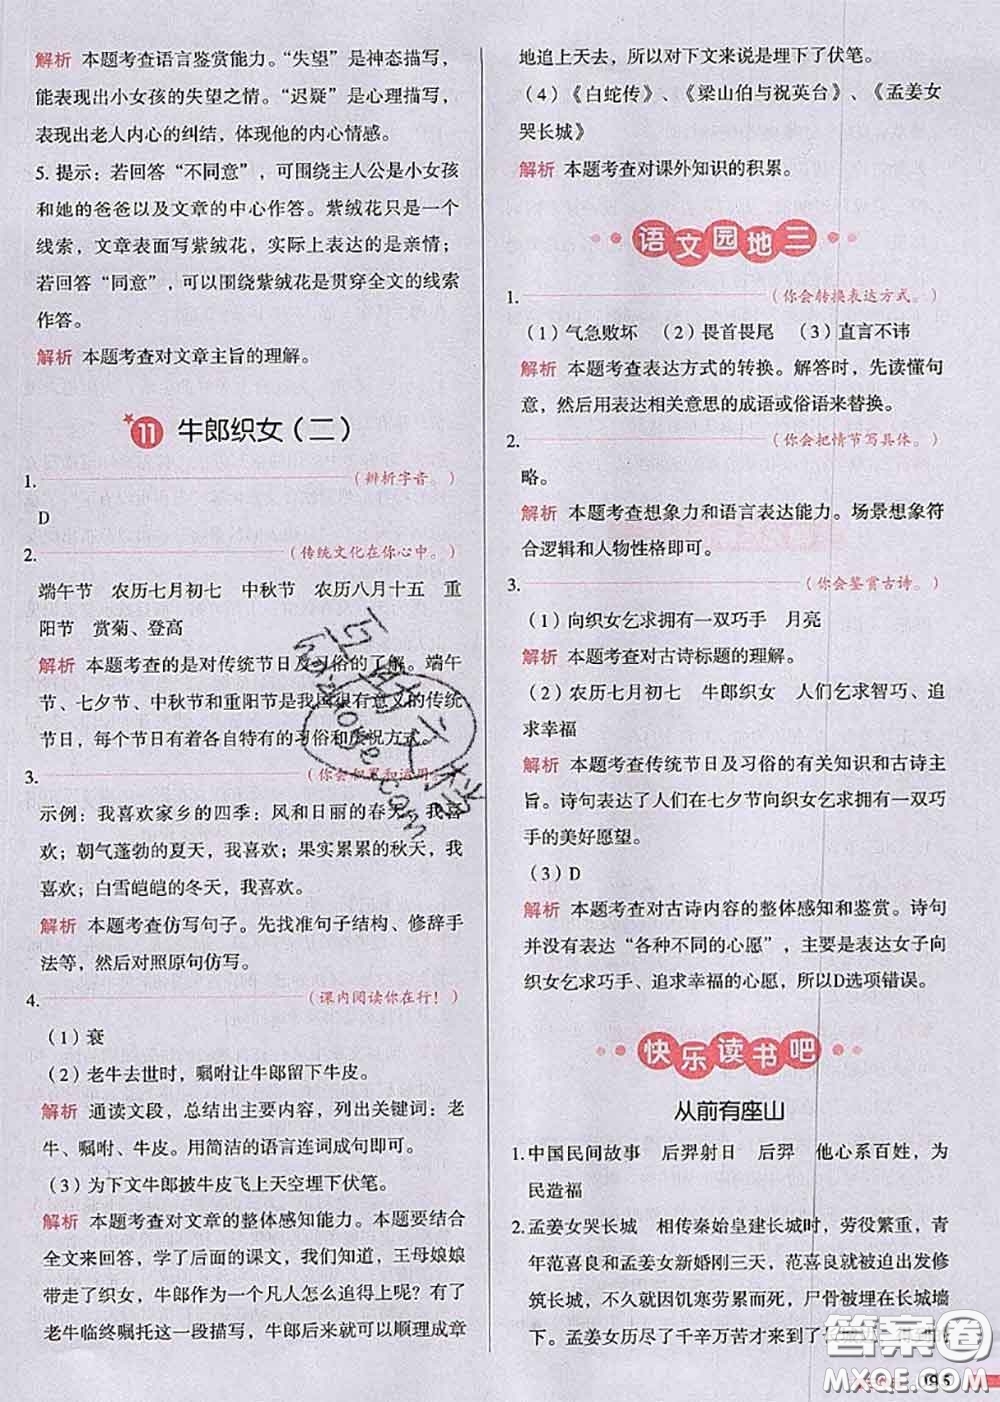 解析 本题考查语言鉴赏能力。“失望”是神态描写，
能表现出小女孩的失望之情。“迟疑”是心理描写，
表现出老人内心的纠结，体现他的内心情感。
5. 提示：若回答“不同意”，可围绕主人公是小女孩
和她的爸爸以及文章的中心作答。紫绒花只是一个
线索，文章表面写紫绒花，实际上表达的是亲情；
若回答“同意”，可以围绕紫绒花是贯穿全文的线索
作答。
解析 本题考查对文章主旨的理解。
11 牛郎织女（二）
1. （辨析字音。）
D
2. （传统文化在你心中。）
端午节 农历七月初七 中秋节 农历八月十五 重
阳节 赏菊、登高
解析 本题考查的是对传统节日及习俗的了解。端午
节、七夕节、中秋节和重阳节是我国很有意义的传统
节日，每个节日有着各自特有的习俗和庆祝方式。
3. （你会积累和运用。）
示例：我喜欢家乡的四季：风和日丽的春天，我喜
欢；朝气蓬勃的夏天，我喜欢；果实累累的秋天，我
喜欢；白雪皑皑的冬天，我喜欢。
解析 本题考查仿写句子。先找准句子结构、修辞手
法等，然后对照原句仿写。
4. （课内阅读你在行！）
（1）衰
（2）老牛去世时，嘱咐让牛郎留下牛皮。
解析 通读文段，总结出大意，列出关键词：老
牛、嘱咐、牛皮。用简洁的语言连词成句即可。
（3）为下文牛郎披牛皮飞上天空埋下伏笔。
解析 本题考查对文章的整体感知能力。本题要结合
全文来回答，学了后面的课文，我们知道，王母娘娘
带走了织女，牛郎作为一个凡人怎么追得上呢？有了
老牛临终嘱托这一段描写，牛郎后来就可以顺理成章
地追上天去，所以对下文来说是埋下了伏笔。
（4）《白蛇传》、《梁山伯与祝英台》、《孟姜女
哭长城》
解析 本题考查对课外知识的积累。
语文园地三
1. （你会转换表达方式。）
（1）气急败坏 （2）畏首畏尾 （3）直言不讳
解析 本题考查表达方式的转换。解答时，先读懂句
意，然后用表达相关意思的成语或俗语来替换。
2. （你会把情节写具体。）
略。
解析 本题考查想象力和语言表达能力。场景想象符
合逻辑和人物性格即可。
3. （你会鉴赏古诗。）
（1）向织女乞求拥有一双巧手 月亮
解析 本题考查对古诗标题的理解。
（2）农历七月初七 牛郎织女 人们乞求智巧、追
求幸福
解析 本题考查传统节日及习俗的有关知识和古诗主
旨。诗句表达了人们在七夕节向织女乞求拥有一双巧
手的美好愿望。
（3）D
解析 本题考查对古诗内容的整体感知和鉴赏。诗句
并没有表达“各种不同的心愿”，主要是表达女子向
织女乞求巧手、追求幸福的心愿，所以D选项错误。
快乐读书吧
从前有座山
1. 中国民间故事 后羿射日 后羿 他心系百姓，为
民造福
2. 孟姜女哭长城 相传秦始皇建长城时，劳役繁重，青
年范喜良和孟姜女新婚刚三天，范喜良就被迫出发修
筑长城，不久就因饥寒劳累而死，尸骨被埋在长城墙
下。孟姜女历尽了千辛万苦才来到了
答案卷
MXQE.COM